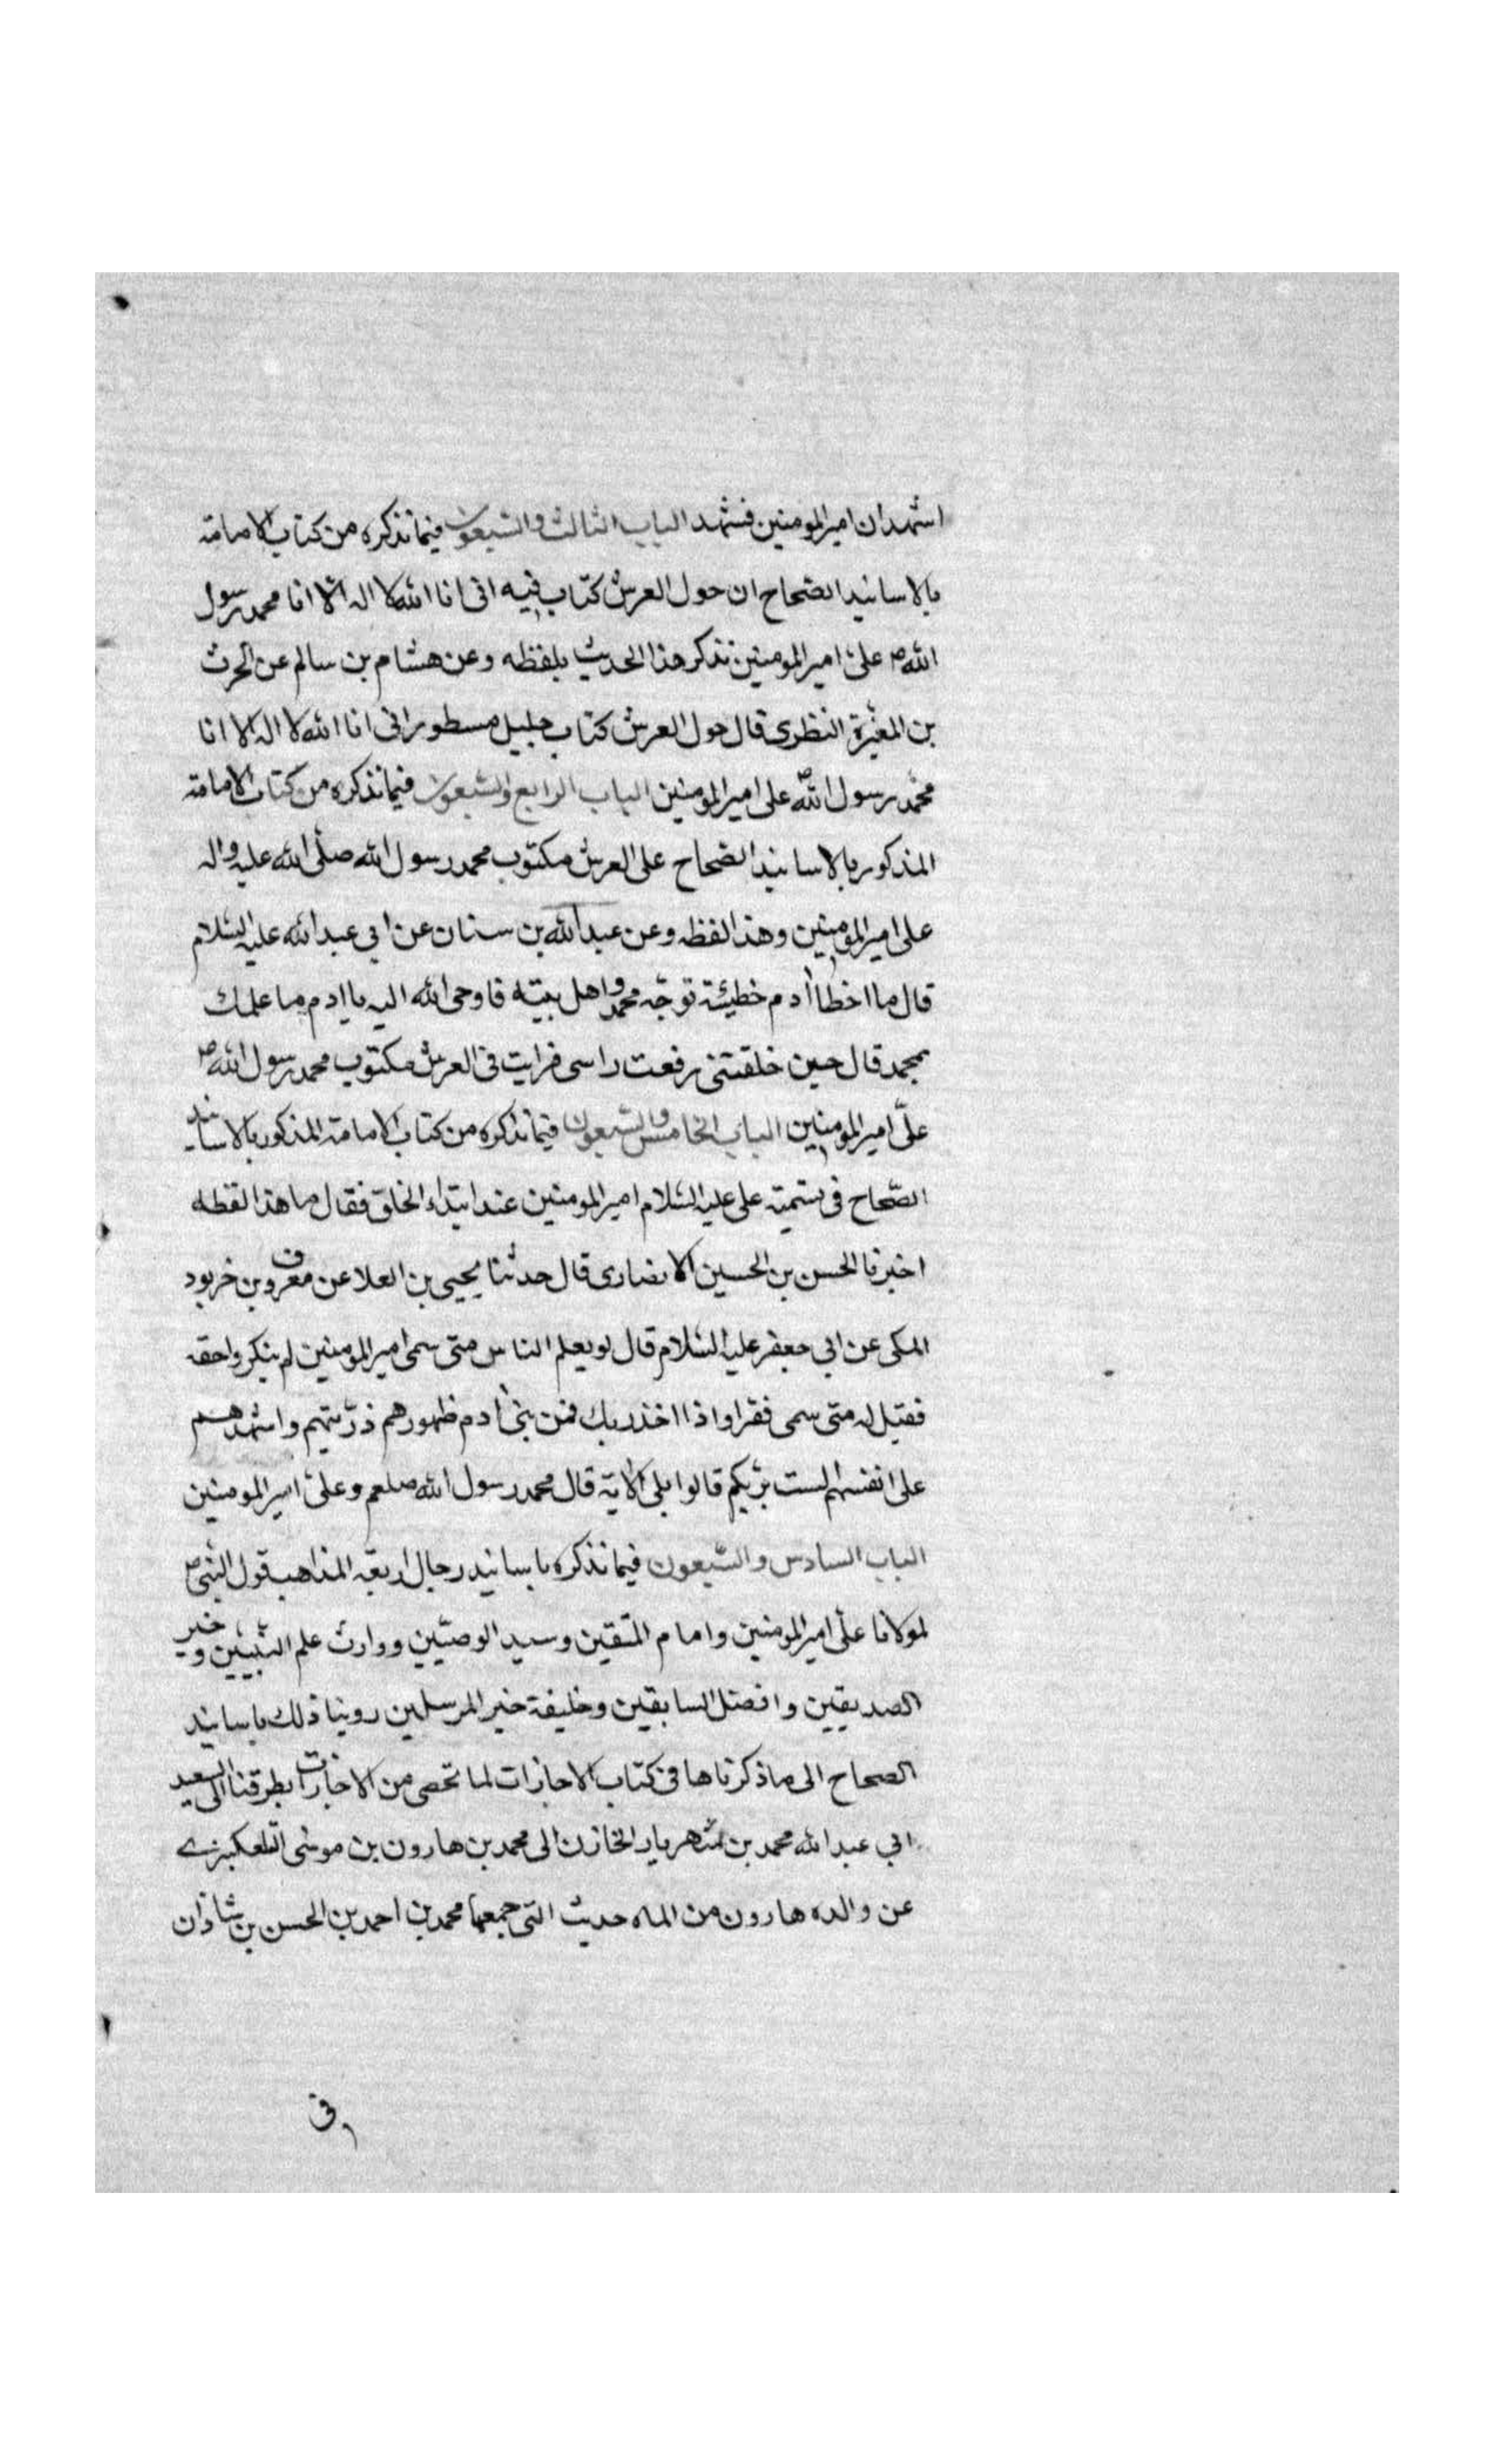 اشهد ان امير المومنين فشهد الباب الثالث والسبعون فيما نذكره من كتاب الامامة
بالاسانيد الصحاح ان حول العرش كتاب فيه انى انا الله لا اله الا انا محمد رسول
الله ص على امير المومنين نذكر هذا الحديث بلفظه وعن هشام بن سالم عن الحرث
بن المغيرة النظرى قال حول العرش كتاب جليل مسطور انى انا الله لا اله الا انا
محمد رسول الله ص على امير المومنين الباب الرابع والسبعون فيما نذكره من كتاب الامامة
المذكور بالاسانيد الصحاح على العرش مكتوب محمد رسول الله صلى الله عليه واله
على امير المومنين وهذا لفظه وعن عبد الله بن سنان عن ابي عبد الله عليه السلام
قال ما اخطا ادم خطيئة توجه محمد واهل بيته فاوحى الله اليه يا ادم ما علمك
بمحمد قال حين خلقتنى رفعت راسى فرايت فى العرش مكتوب محمد رسول الله ص
على امير المومنين الباب الخامس والسبعون فيما نذكره من كتاب الامامة المذكور بالاسانيد
الصحاح فى تسمية على عليه السلام امير المومنين عند ابتداء الخلق فقال ما هذا لفظه
اخبرنا الحسن بن الحسين الانصارى قال حدثنا يحيى بن العلا عن معروف بن خربود
المكى عن ابي جعفر عليه السلام قال لو يعلم الناس متى سمى امير المومنين لم ينكروا حقه
فقيل له متى سمى فقرا واذا اخذ ربك من بنى ادم ظهورهم ذريتهم واشهدهم
على انفسهم الست بربكم قالوا بلى الاية قال محمد رسول الله صلعم وعلى امير المومنين
الباب السادس والسبعون فيما نذكره باسانيد رجال اربعة المذاهب قول النبى ص
لمولانا على امير المومنين وامام المتقين وسيد الوصيين ووارث علم النبيين وخير
الصديقين وافضل السابقين وخليفة خير المرسلين روينا ذلك باسانيد
الصحاح الى ما ذكرناها فى كتاب الاجازات لما تحصى من الاجازات بطرقنا الى السعيد
ابي عبد الله محمد بن شهريار الخازن الى محمد بن هارون بن موسى التلعكبرى
عن والده هارون من الماه حديث التى جمعها محمد بن احمد بن الحسن بن شاذان